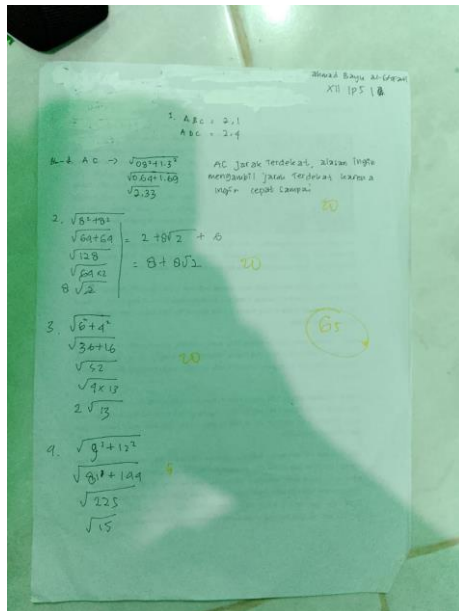 Ahmad Bayu Al-Ghifari
XII IPS 1
1. ABC = 2,1
ADC = 2,4
AC → √08²+1.3²
√0.64+1.69
√2.33
AC jarak Terdekat, alasan Ingin
mengambil jarak Terdekat karena
ingin cepat Sampai
20
2. √8²+8²
√64+64
√128
√64×2
8√2
= 2+8√2 + 6
= 8+8√2
20
3. √6²+4²
√36+16
√52
√4×13
2√13
20
65
4. √9²+12²
√81+144
√225
√15